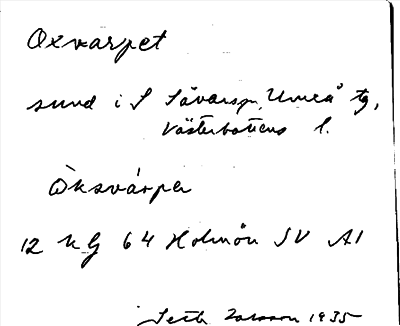 Oxvarpet
sund i S Sävarsn, Umeå tg,
Västerbottens l.
Òksvárpe
12 KG 64 Holmön SV A1
Seth Larsson 1935